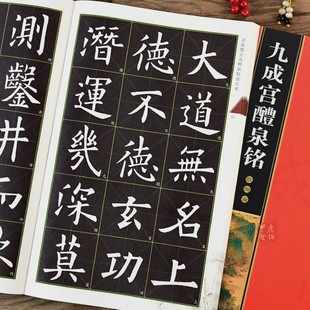 大道無名上
德不德玄功
潛運幾深莫
測鑿井而飲
九成宫醴泉铭